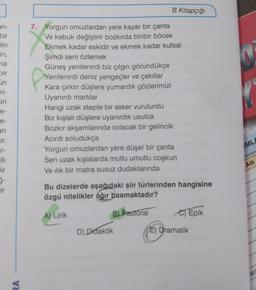 B Kitapçığı
7. Yorgun omuzlardan yere kayar bir çanta
Ve kabuk değiştirir bozkırda binbir böcek
Ekmek kadar eskidir ve ekmek kadar kutsal
Şimdi seni özlemek
Güneş yenilenirdi biz çılgın göründükçe
Yenilenirdi deniz yengeçler ve çakıllar
Kara çirkin düşlere yumardık gözlerimizi
Uyanırdı martılar
Hangi uzak stepte bir asker vurulurdu
Biz kışlalı düşlere uyanırdık usulca
Bozkır akşamlarında solacak bir gelincik
Acırdı soldukça
Yorgun omuzlardan yere düşer bir çanta
Sen uzak kışlalarda mutlu umutlu coşkun
Ve ılık bir matra susuz dudaklarında
Bu dizelerde aşağıdaki şiir türlerinden hangisine
özgü nitelikler ağır basmaktadır?
A) Lirik
B) Pastoral
C) Epik
D) Didaktik
E) Dramatik